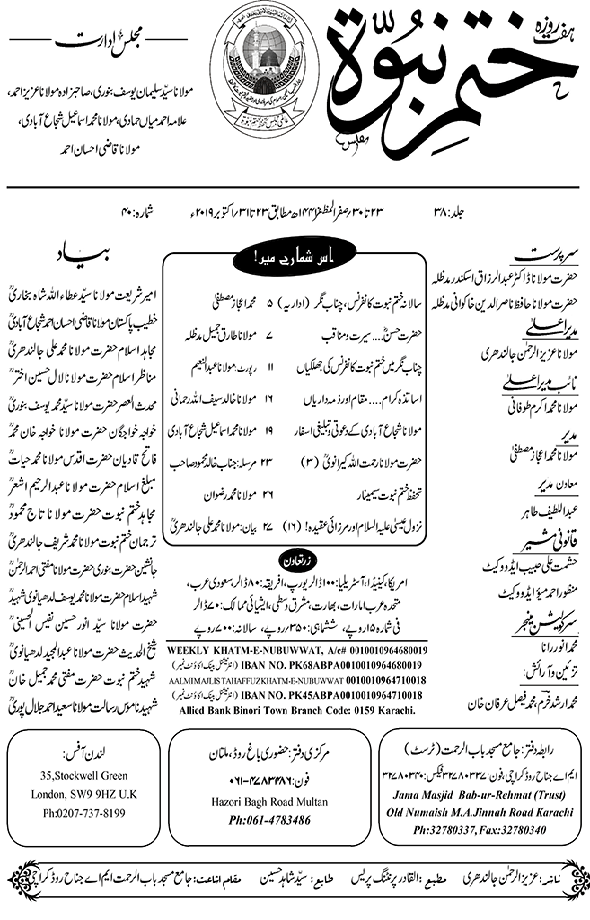 ہفت روزہ
ختم نبوّۃ
مجلس ادارت
مولانا سیّد سلیمان یوسف بنوری، صاحبزادہ مولانا عزیز احمد،
علامہ احمد میاں حمادی، مولانا محمد اسماعیل شجاع آبادی،
مولانا قاضی احسان احمد
جلد: ۳۸
۲۳ تا ۳۰ / صفر المظفر ۱۴۴۱ھ مطابق ۲۳ تا ۳۱ / اکتوبر ۲۰۱۹ء
شمارہ: ۴۰
سرپرست
حضرت مولانا ڈاکٹر عبدالرزاق اسکندر مدظلہ
حضرت مولانا حافظ ناصر الدین خاکوانی مدظلہ
مدیر اعلیٰ
مولانا عزیز الرحمٰن جالندھری
نائب مدیر اعلیٰ
مولانا محمد اکرم طوفانی
مدیر
مولانا محمد اعجاز مصطفیٰ
معاون مدیر
عبداللطیف طاہر
قانونی مشیر
حشمت علی حبیب ایڈووکیٹ
منظور احمد میؤ ایڈووکیٹ
سرکولیشن منیجر
محمد انور رانا
تزئین و آرائش:
محمد ارشد خرم، محمد فیصل عرفان خان
اس شمارے میں!
سالانہ ختم نبوت کانفرنس، چناب نگر (اداریہ) ۵ محمد اعجاز مصطفیٰ
حضرت حسنؓ.... سیرت و مناقب ۷ مولانا طارق جمیل مدظلہ
چناب نگر میں ختم نبوت کانفرنس کی جھلکیاں ۱۱ رپورٹ: مولانا عبدالنعیم
اساتذہ کرام.... مقام اور ذمہ داریاں ۱۶ مولانا خالد سیف اللہ رحمانی
مولانا شجاع آبادی کے دعوتی و تبلیغی اسفار ۱۹ مولانا محمد اسماعیل شجاع آبادی
حضرت مولانا رحمت اللہ کیرانویؒ (۳) ۲۳ مرسلہ: جناب خالد محمود صاحب
تحفظ ختم نبوت سیمینار ۲۶ مولانا محمد رضوان
نزول عیسیٰ علیہ السلام اور مرزائی عقیدہ! (۱۶) ۲۷ بیان: مولانا محمد علی جالندھریؒ
زر تعاون
امریکا، کینیڈا، آسٹریلیا: ۱۰۰ ڈالر یورپ، افریقہ: ۸۰ ڈالر، سعودی عرب،
متحدہ عرب امارات، بھارت، مشرق وسطیٰ، ایشیائی ممالک: ۷۰ ڈالر
فی شمارہ ۱۵ روپے، ششماہی: ۳۵۰ روپے، سالانہ: ۷۰۰ روپے
WEEKLY KHATM-E-NUBUWWAT, A/c# 0010010964680019
IBAN NO. PK68ABPA0010010964680019 (انٹرنیشنل بینک اکاؤنٹ نمبر)
AALMI MAJLIS TAHAFFUZ KHATM-E-NUBUWWAT 0010010964710018
IBAN NO. PK45ABPA0010010964710018 (انٹرنیشنل بینک اکاؤنٹ نمبر)
Allied Bank Binori Town Branch Code: 0159 Karachi.
بیاد
امیر شریعت مولانا سیّد عطاء اللہ شاہ بخاریؒ
خطیب پاکستان مولانا قاضی احسان احمد شجاع آبادیؒ
مجاہد اسلام حضرت مولانا محمد علی جالندھریؒ
مناظر اسلام حضرت مولانا لال حسین اخترؒ
محدث العصر حضرت مولانا سیّد محمد یوسف بنوریؒ
خواجہ خواجگان حضرت مولانا خواجہ خان محمدؒ
فاتح قادیان حضرت اقدس مولانا محمد حیاتؒ
مبلغ اسلام حضرت مولانا عبدالرحیم اشعرؒ
مجاہد ختم نبوت حضرت مولانا تاج محمودؒ
ترجمان ختم نبوت مولانا محمد شریف جالندھریؒ
جانشین حضرت بنوری حضرت مولانا مفتی احمد الرحمٰنؒ
شہید اسلام حضرت مولانا محمد یوسف لدھیانوی شہیدؒ
حضرت مولانا سیّد انور حسین نفیس الحسینیؒ
شیخ الحدیث حضرت مولانا عبدالمجید لدھیانویؒ
شہید ختم نبوت حضرت مفتی محمد جمیل خانؒ
شہید ناموس رسالت مولانا سعید احمد جلال پوریؒ
رابطہ دفتر: جامع مسجد باب الرحمت (ٹرسٹ)
ایم اے جناح روڈ کراچی فون: ۳۲۷۸۰۳۳۷ فیکس: ۳۲۷۸۰۳۴۰
Jama Masjid Bab-ur-Rehmat (Trust)
Old Numaish M.A.Jinnah Road Karachi
Ph:32780337, Fax:32780340
مرکزی دفتر: حضوری باغ روڈ، ملتان
فون: ۰۶۱-۴۷۸۳۴۸۶
Hazori Bagh Road Multan
Ph:061-4783486
لندن آفس:
35,Stockwell Green
London, SW9 9HZ U.K
Ph:0207-737-8199
ناشر: عزیز الرحمٰن جالندھری مطبع: القادر پرنٹنگ پریس طابع: سیّد شاہد حسین مقام اشاعت: جامع مسجد باب الرحمت ایم اے جناح روڈ کراچی